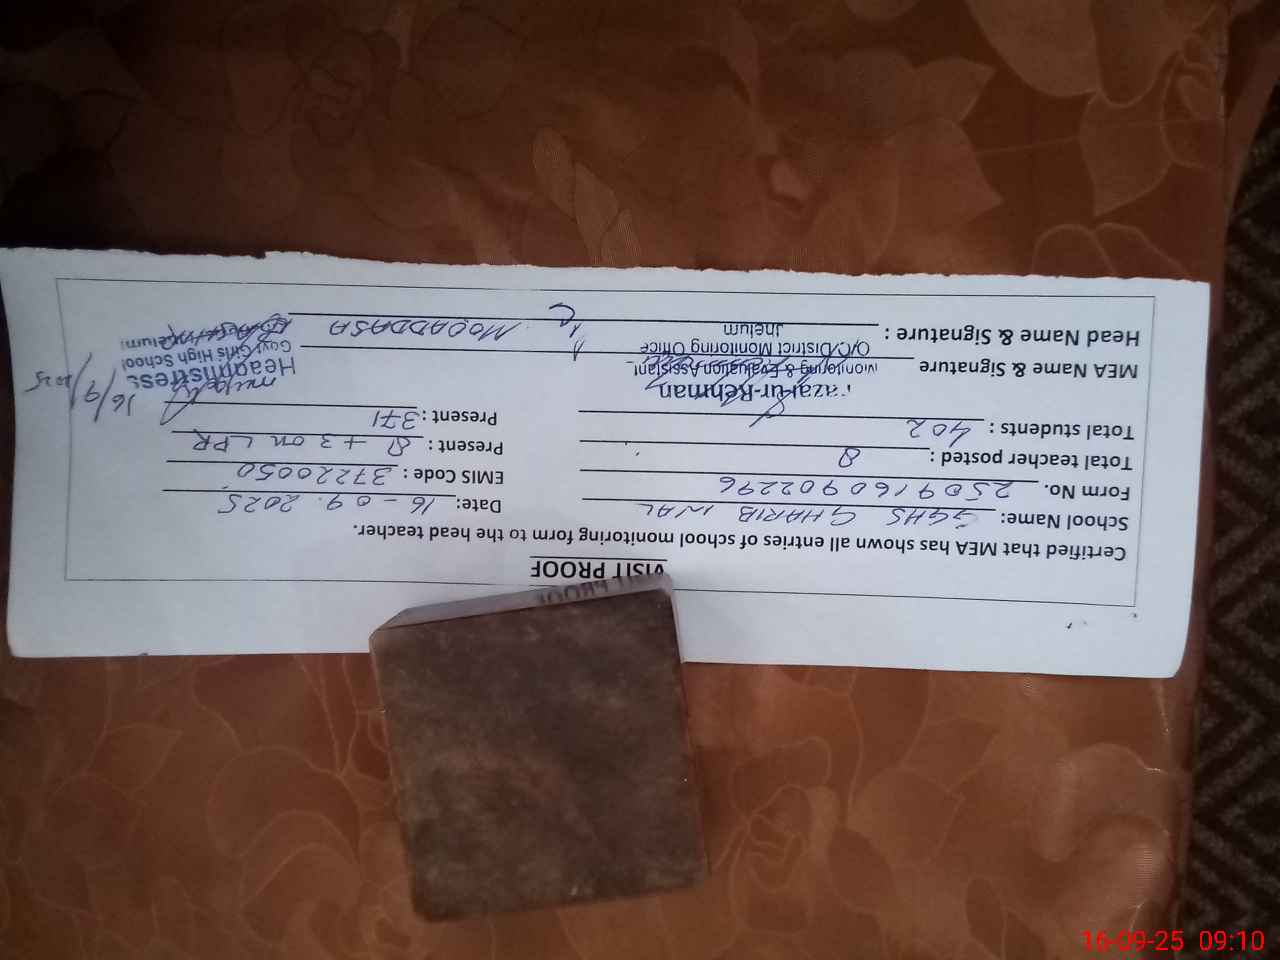 VISIT PROOF
Certified that MEA has shown all entries of school monitoring form to the head teacher.
School Name: GGHS GHARIB WAL Date: 16-09.2025
Form No. 2509160902296 EMIS Code: 37220050
Total teacher posted: 8 Present: 8 + 3 on LPR
Total students: 402 Present: 371
MEA Name & Signature
Fazal-ur-Rehman
Monitoring & Evaluation Assistant
O/C District Monitoring Office
Jhelum
Head Name & Signature: MOQADDASA
Headmistress
Govt Girls High School
16/9/2025
16-09-25 09:10